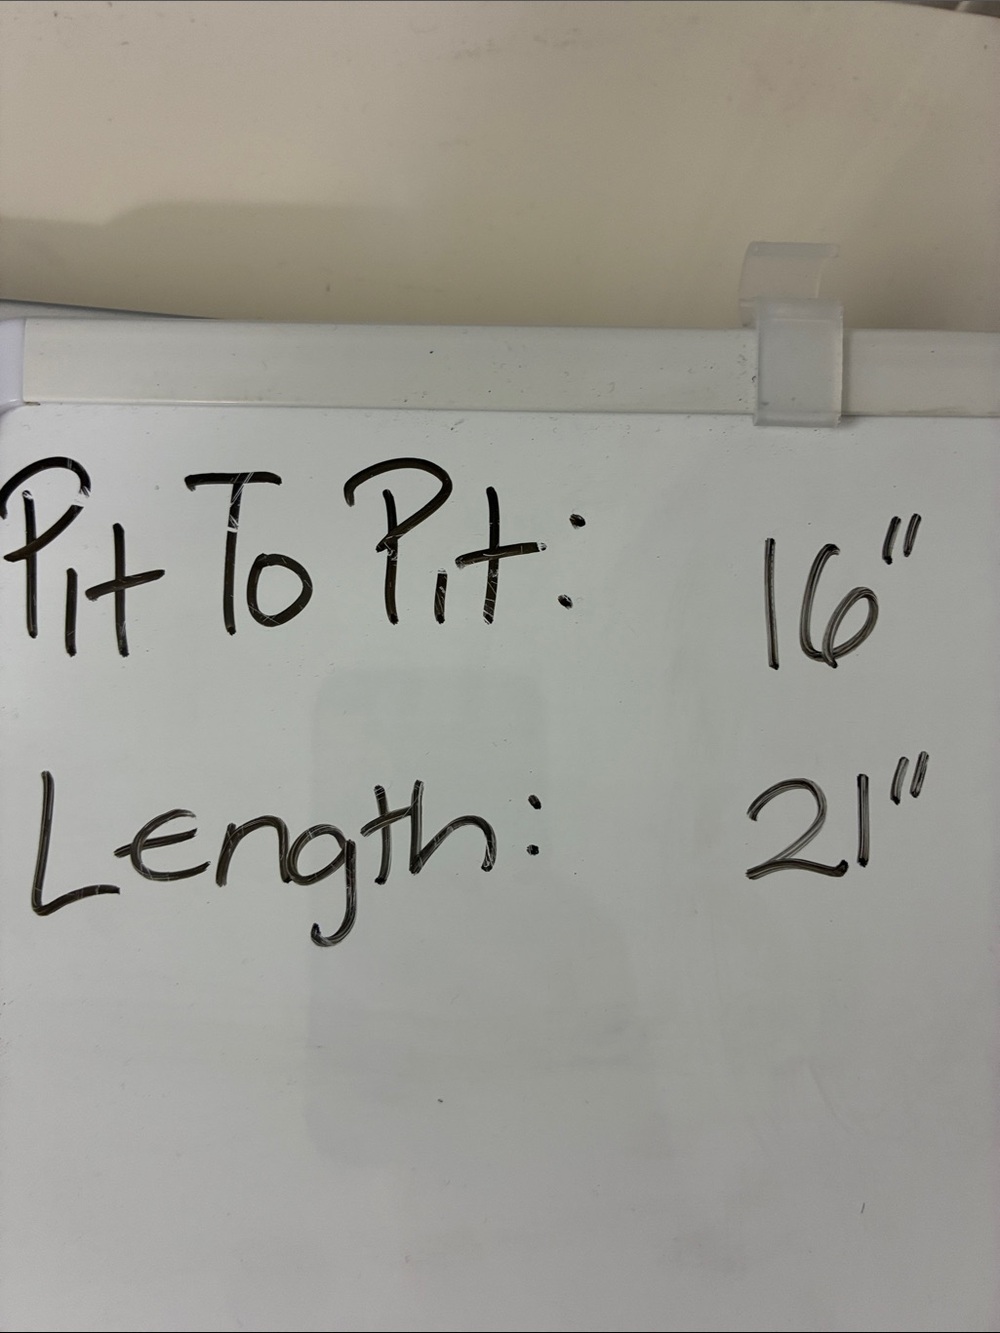 Pit To Pit: 16"
Length: 21"